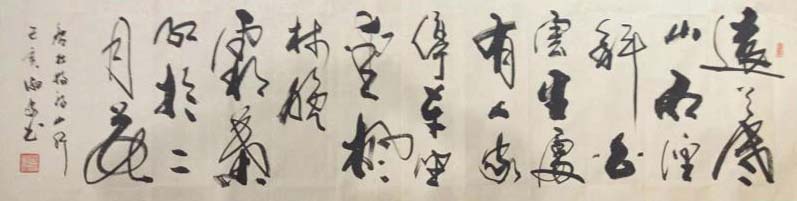 遠上寒
山石徑
斜白
雲生處
有人家
停車坐
愛楓
林晚
霜葉
紅於二
月花
唐杜牧詩山行
己亥書